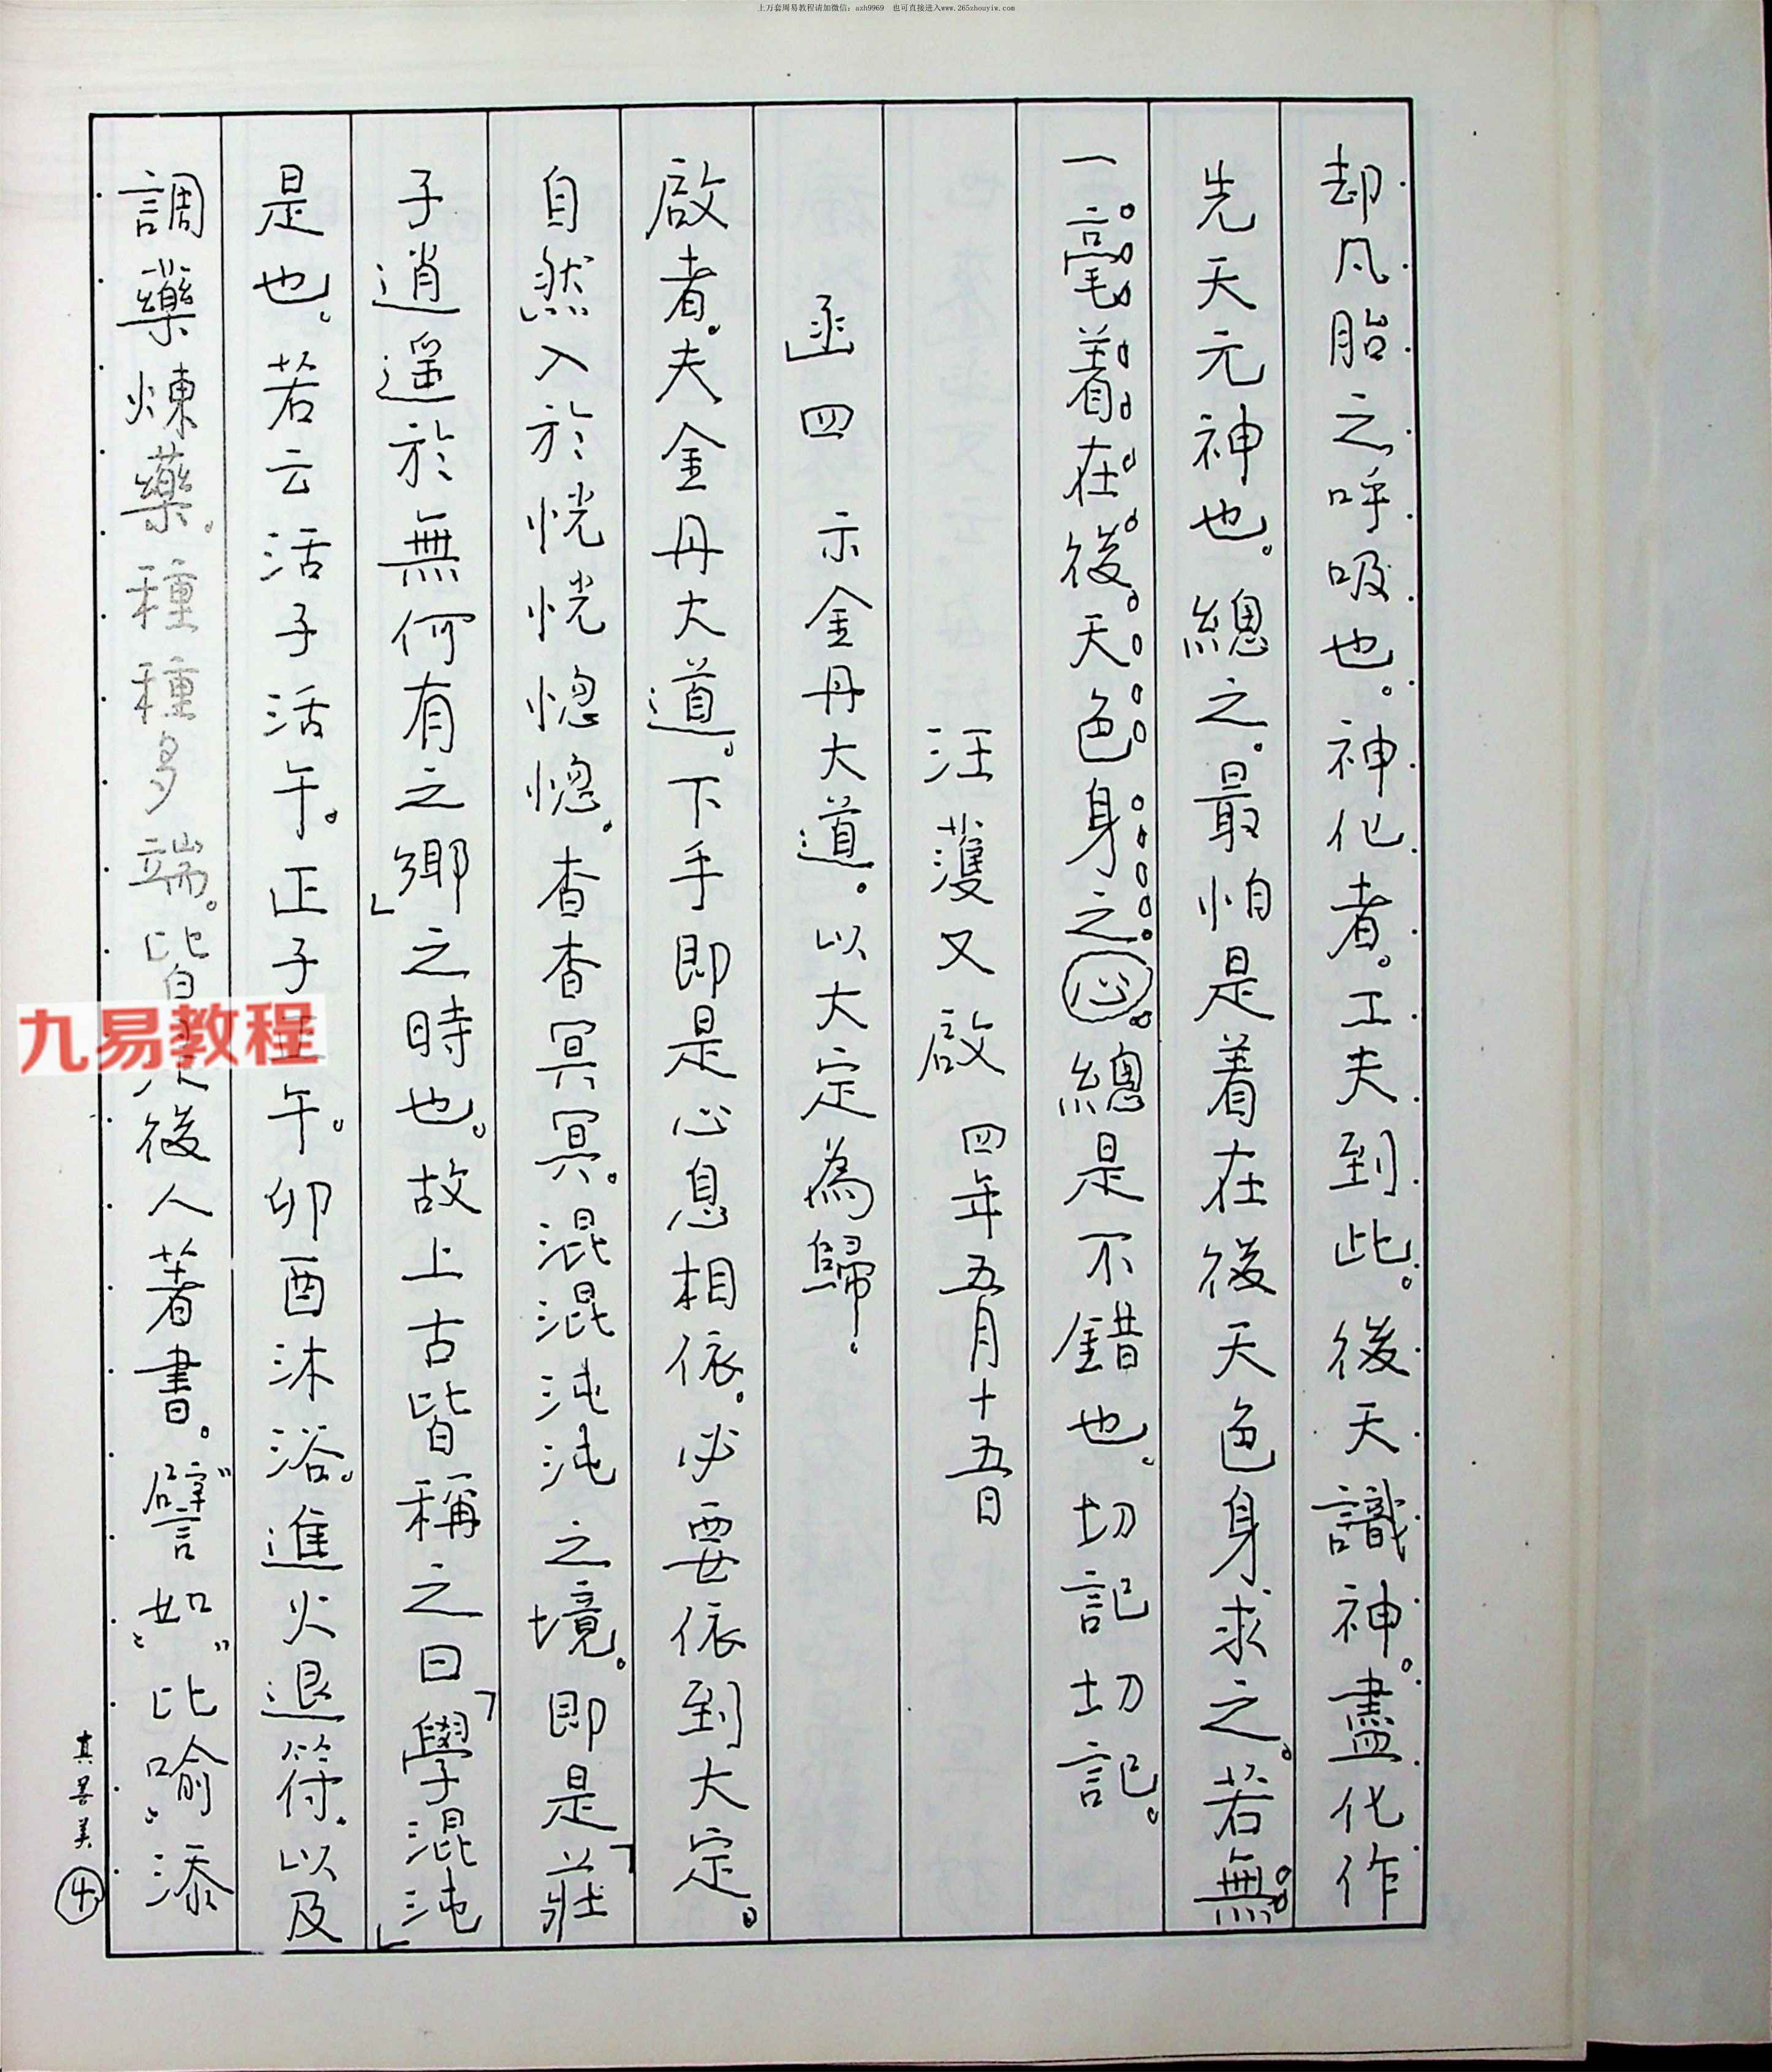 上万套周易教程请加微信：azh9969 也可直接进入www.265zhouyiw.com
却凡胎之呼吸也。神化者。工夫到此。後天識神。盡化作
先天元神也。總之。最怕是着在後天色身求之。若無
一毫着在後天色身之心。總是不錯也。切記切記。
汪蓮又啟 四年五月十五日
函四 示金丹大道。以大定為歸。
啟者。夫金丹大道。下手即是心息相依。必要依到大定。
自然入於恍恍惚惚。杳杳冥冥。混混沌沌之境。即是「莊
子逍遥於無何有之鄉」之時也。故上古皆稱之曰「學混沌」
是也。若云活子活午。正子正午。卯酉沐浴。進火退符。以及
調藥煉藥。種種多端。皆是後人著書。“譬如”比喻”添
真善美 ④
九易教程